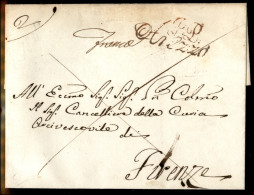 franca
All' Eccmo Sigr Sigr Pn Colmo
Il Sigr Cancelliere della Curia
Arcivescovile di
Firenze